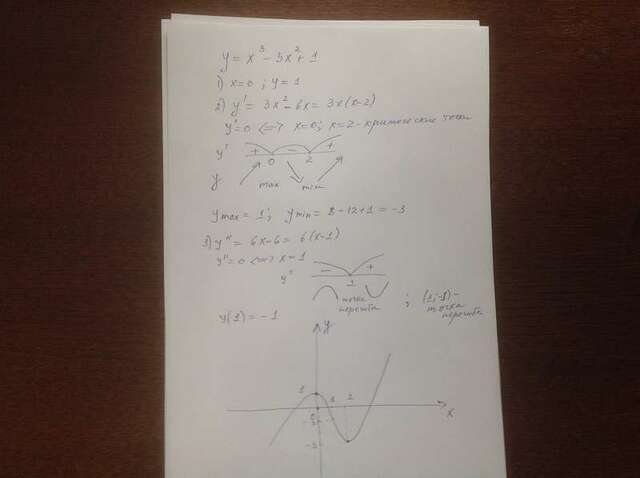 y = x³ - 3x² + 1
1) x=0 ; y=1
2) y' = 3x² - 6x = 3x(x-2)
y'=0 <=> x=0; x=2 - критические точки
y' + - +
0 2
y max min
y max = 1; y min = 8-12+1 = -3
3) y'' = 6x-6 = 6(x-1)
y''=0 <=> x=1
y'' - +
1
точка перегиба
y(1) = -1 ; (1;-1) - точка перегиба
y
1 2
x